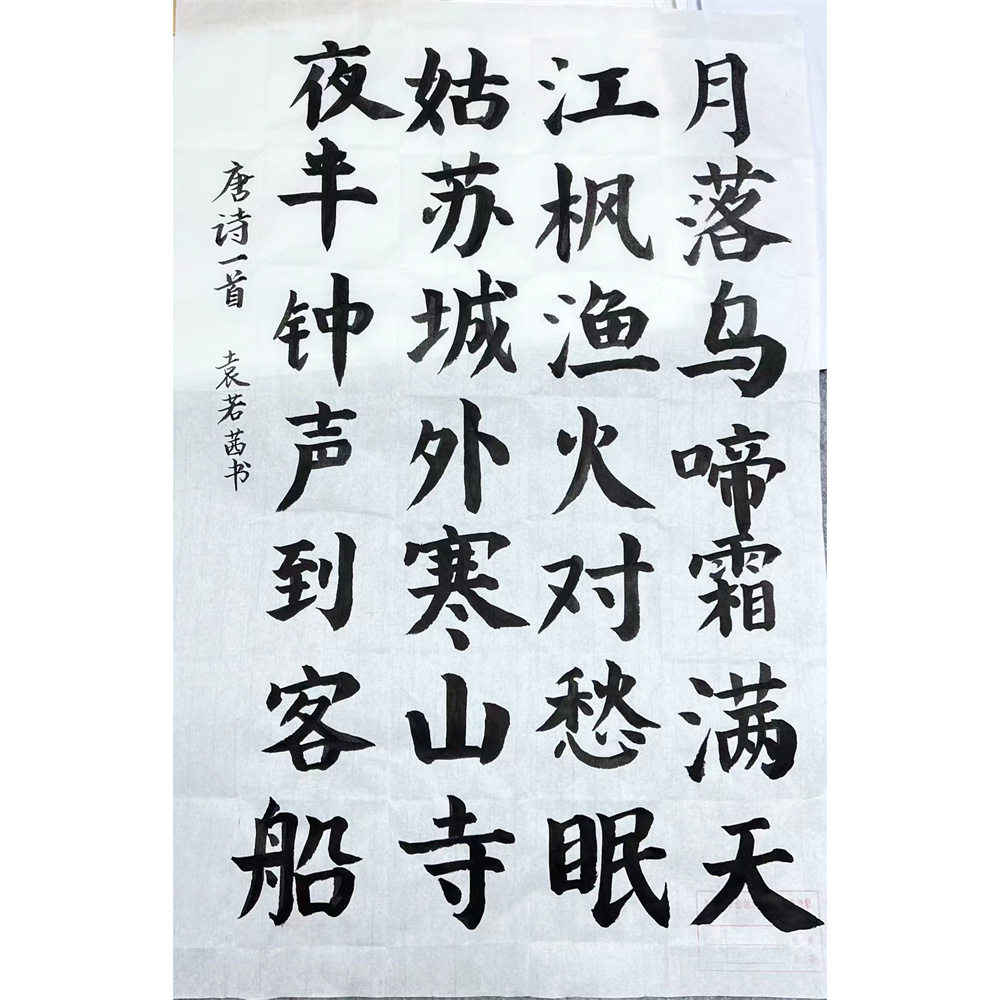 月落乌啼霜满天
江枫渔火对愁眠
姑苏城外寒山寺
夜半钟声到客船
唐诗一首 袁若茜书